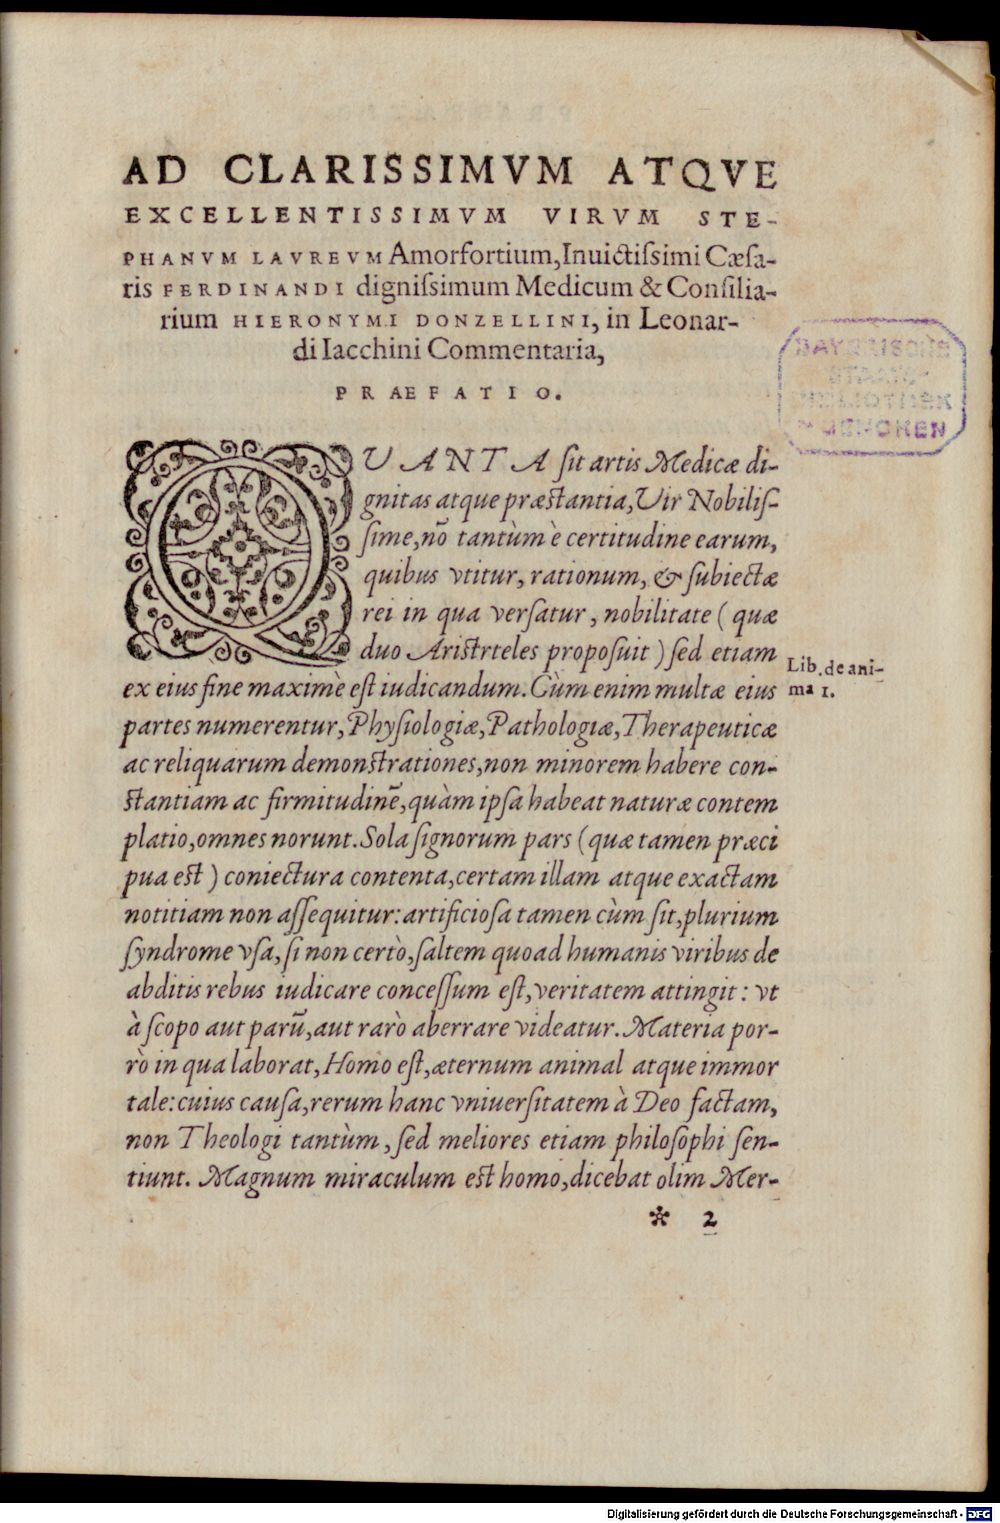 AD CLARISSIMVM ATQVE
EXCELLENTISSIMVM VIRVM STE-
PHANVM LAVREVM Amorfortium, Inuictiſsimi Cæſa-
ris FERDINANDI digniſsimum Medicum & Conſilia-
rium HIERONYMI DONZELLINI, in Leonar-
di Iacchini Commentaria,
PRAEFATIO.
QUANTA ſit artis Medicæ di-
gnitas atque præstantia, Vir Nobiliſ-
ſime, nō tantùm è certitudine earum,
quibus vtitur, rationum, & ſubiectæ
rei in qua verſatur, nobilitate (quæ
duo Aristrteles propoſuit) ſed etiam
ex eius fine maximè eſt iudicandum. Cùm enim multæ eius
partes numerentur, Phyſiologiæ, Pathologiæ, Therapeuticæ
ac reliquarum demonſtrationes, non minorem habere con-
ſtantiam ac firmitudinē, quàm ipſa habeat naturæ contem
platio, omnes norunt. Sola ſignorum pars (quæ tamen præci
pua eſt) coniectura contenta, certam illam atque exactam
notitiam non aſſequitur: artificioſa tamen cùm ſit, plurium
ſyndrome vſa, ſi non certò, ſaltem quoad humanis viribus de
abditis rebus iudicare conceſſum eſt, veritatem attingit: vt
à ſcopo aut parū, aut rarò aberrare videatur. Materia por-
rò in qua laborat, Homo eſt, æternum animal atque immor
tale: cuius cauſa, rerum hanc vniuerſitatem à Deo factam,
non Theologi tantùm, ſed meliores etiam philoſophi ſen-
tiunt. Magnum miraculum est homo, dicebat olim Mer-
Lib. de ani-
ma 1.
* 2
BAYERISCHE
STAATS-
BIBLIOTHEK
MUENCHEN
Digitalisierung gefördert durch die Deutsche Forschungsgemeinschaft - DFG